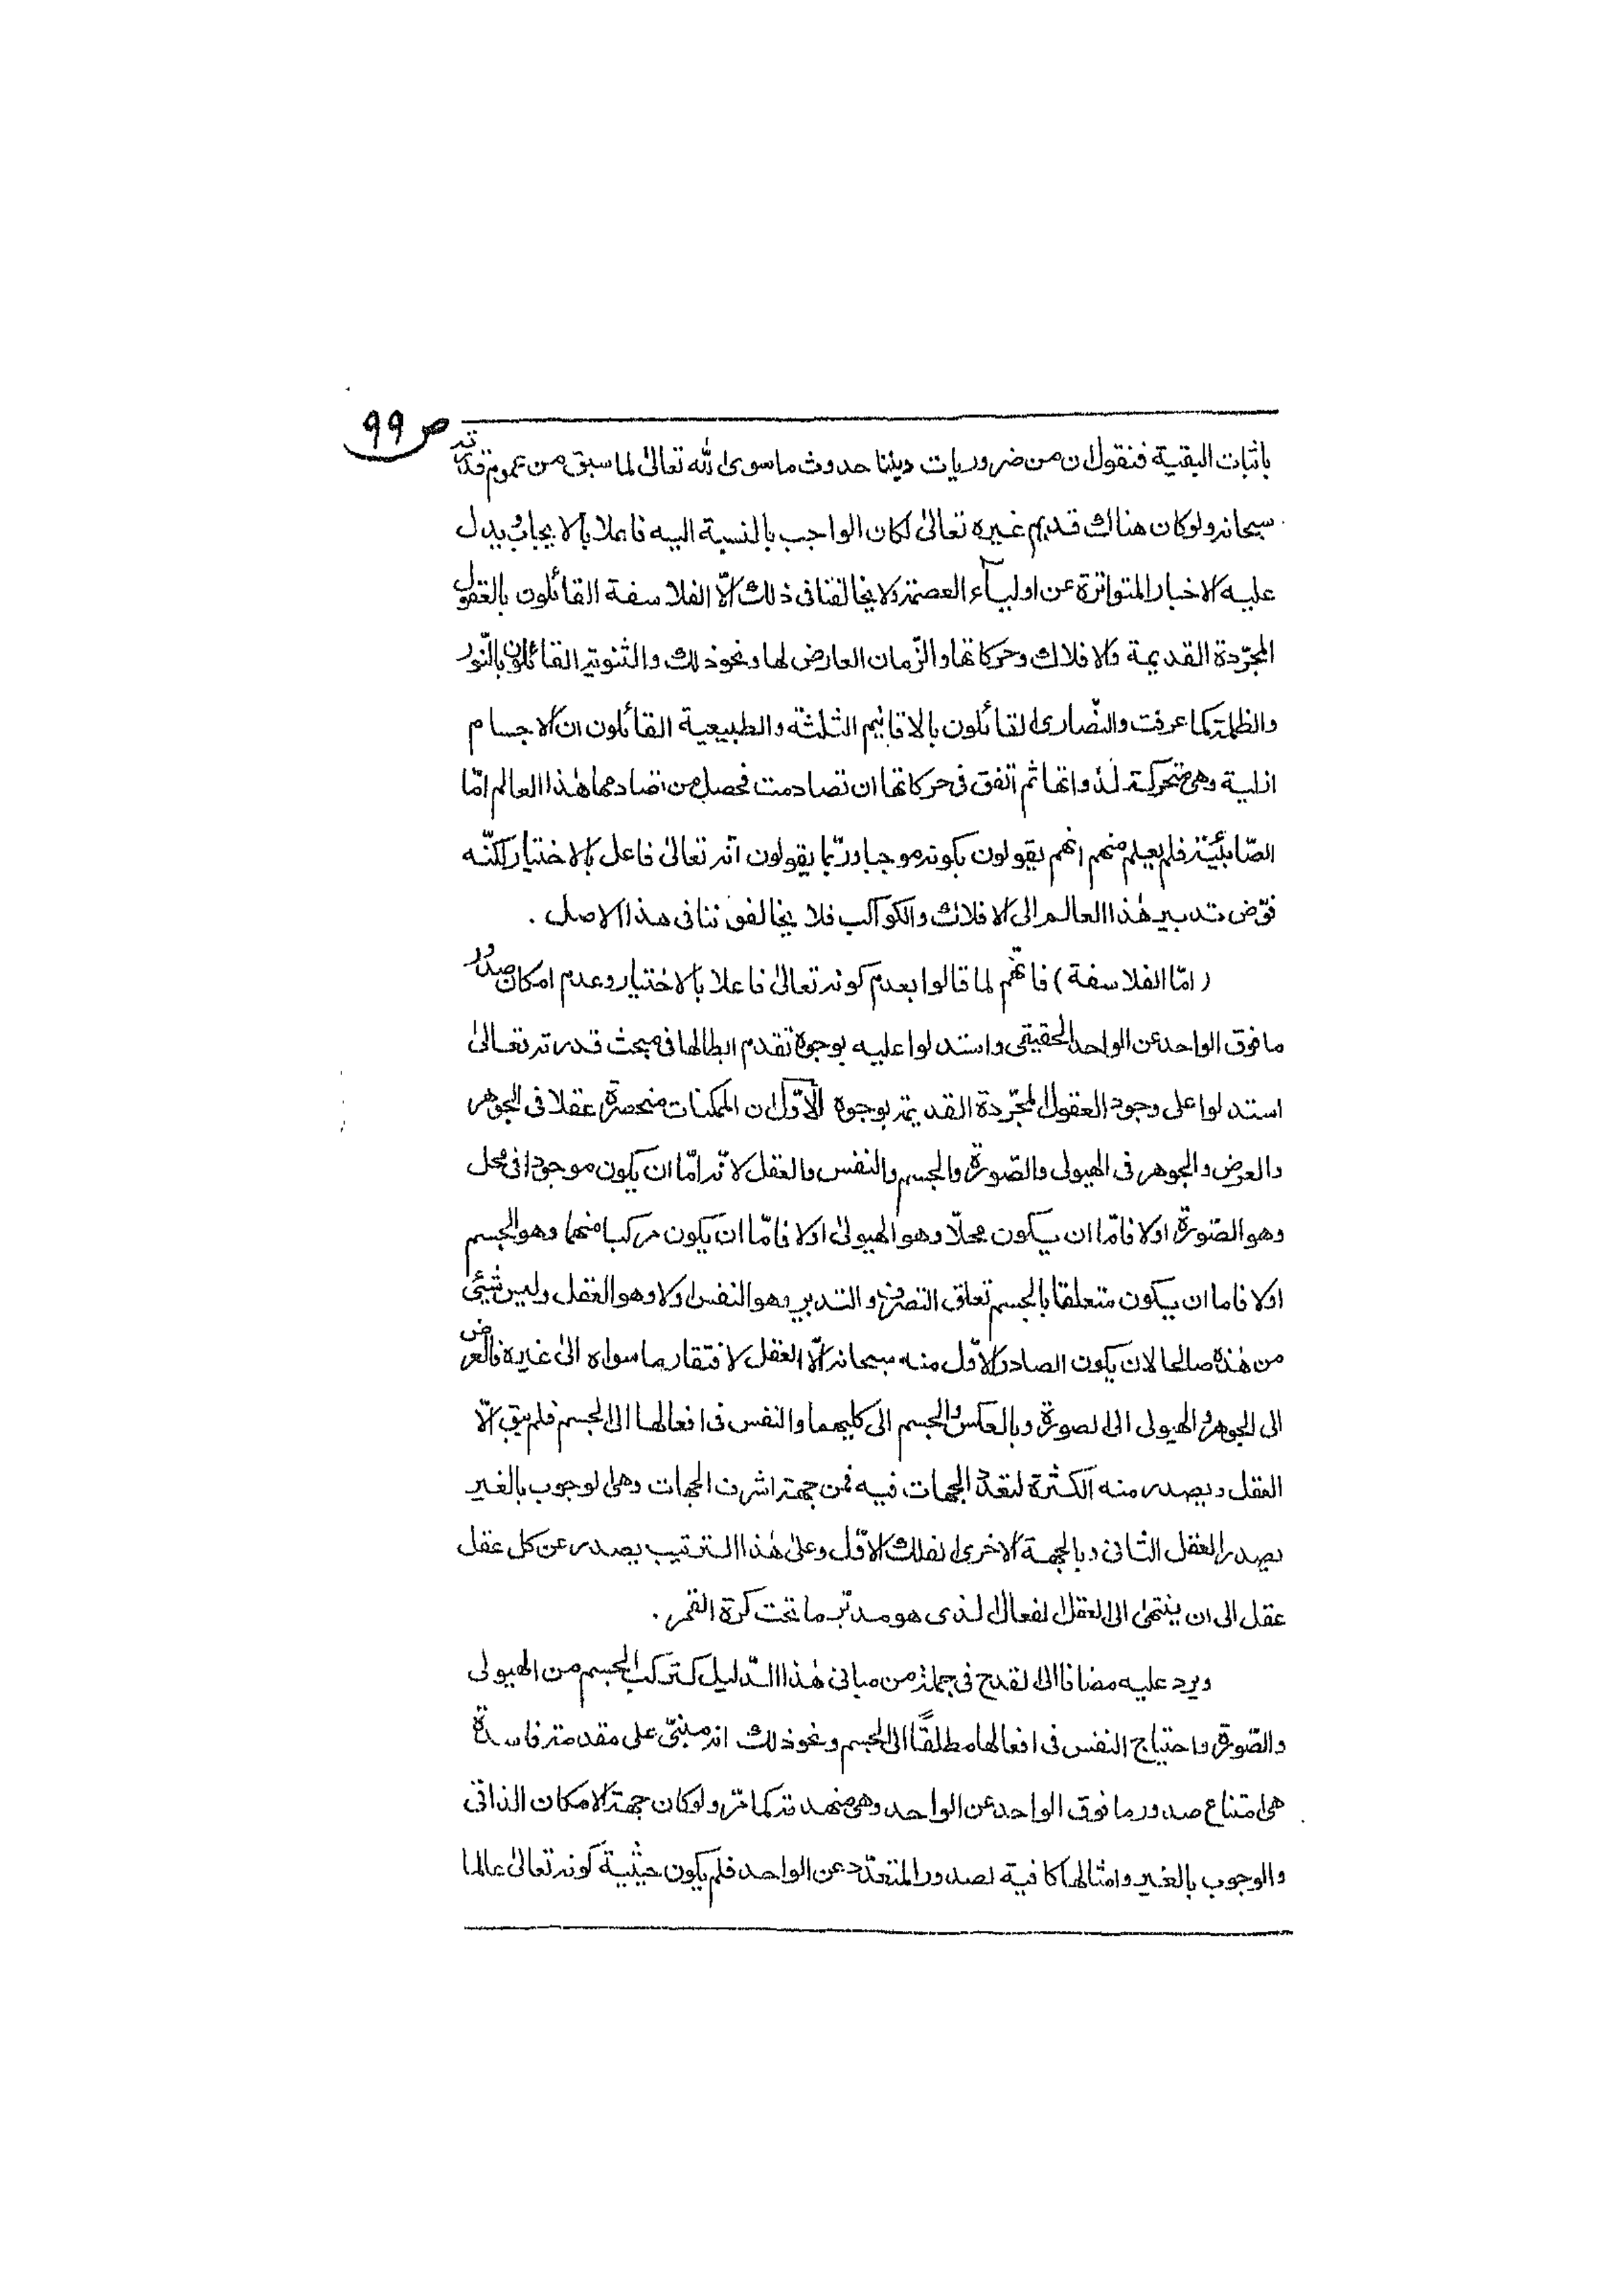 ص ٩٩
باثبات البقية فنقول ان من ضروريات ديننا حدوث ما سوى الله تعالىٰ لما سبق من عموم قدرته
سبحانه ولو كان هناك قديم غيره تعالىٰ لكان الواجب بالنسبة اليه فاعلا بالايجاب ويدل
عليه الاخبار المتواترة عن اولياء العصمة ولا يخالفنا فى ذلك الّا الفلاسفة القائلون بالعقول
المجرّدة القديمة والافلاك وحركاتها والزّمان العارض لها ونحو ذلك والثنوية القائلون بالنّور
والظلمة كما عرفت والنّصارى القائلون بالاقانيم الثلثة والطبيعية القائلون ان الاجسام
ازلية وهى متحركة لذواتها ثم اتّفق فى حركاتها ان تصادمت فحصل من تصادمها هٰذا العالم امّا
الصّابئيّة فلم يعلم منهم انهم يقولون بكونه موجبا وربّما يقولون انّه تعالىٰ فاعل بالاختيار لكنّه
فوّض تدبير هٰذا العالم الى الافلاك والكواكب فلا يخالفوننا فى هذا الاصل .
(امّا الفلاسفة) فانّهم لما قالوا بعدم كونه تعالىٰ فاعلا بالاختيار وعدم امكان صدور
ما فوق الواحد عن الواحد الحقيقى واستدلوا عليه بوجوه تقدم ابطالها فى مبحث قدرته تعالىٰ
استدلوا على وجود العقول المجّردة القديمة بوجوه الاوّل ان الممكنات منحصرة عقلا فى الجوهر
والعرض والجوهر فى الهيولى والصّورة والجسم والنفس والعقل لانّه امّا ان يكون موجودا فى محل
وهو الصّورة اولا فامّا ان يكون محلّا وهو الهيولىٰ اولا فامّا ان يكون مركبا منهما وهو الجسم
اولا فاما ان يكون متعلقا بالجسم تعلق التصرف والتدبير وهو النفس اولا وهو العقل وليس شيئى
من هٰذه صالحا لان يكون الصادر الاوّل منه سبحانه الّا العقل لافتقار ما سواه الىٰ غيره فالعرض
الى الجوهر والهيولى الى الصورة وبالعكس والجسم الى كليهما والنفس فى افعالها الى الجسم فلم يبق الّا
العقل ويصدر منه الكثرة لتعدد الجهات فيه فمن جهة اشرف الجهات وهى الوجوب بالغير
يصدر العقل الثانى وبالجهة الاخرى الفلك الاوّل وعلىٰ هٰذا الترتيب يصدر عن كل عقل
عقل الى ان ينتهىٰ الى العقل الفعال الذى هو مدبّر ما تحت كرة القمر .
ويرد عليه مضافا الى القدح فى جملة من مبانى هٰذا الدّليل كتركب الجسم من الهيولى
والصّورة واحتياج النفس فى افعالها مطلقًا الى الجسم ونحو ذلك انه مبنىّ على مقدمة فاسدة
هى امتناع صدور ما فوق الواحد عن الواحد وهى منهدمة كما مرّ ولو كان جهة الامكان الذاتى
والوجوب بالغير وامثالها كافية لصدور المتعدّد عن الواحد فلم يكون حيثية كونه تعالىٰ عالما